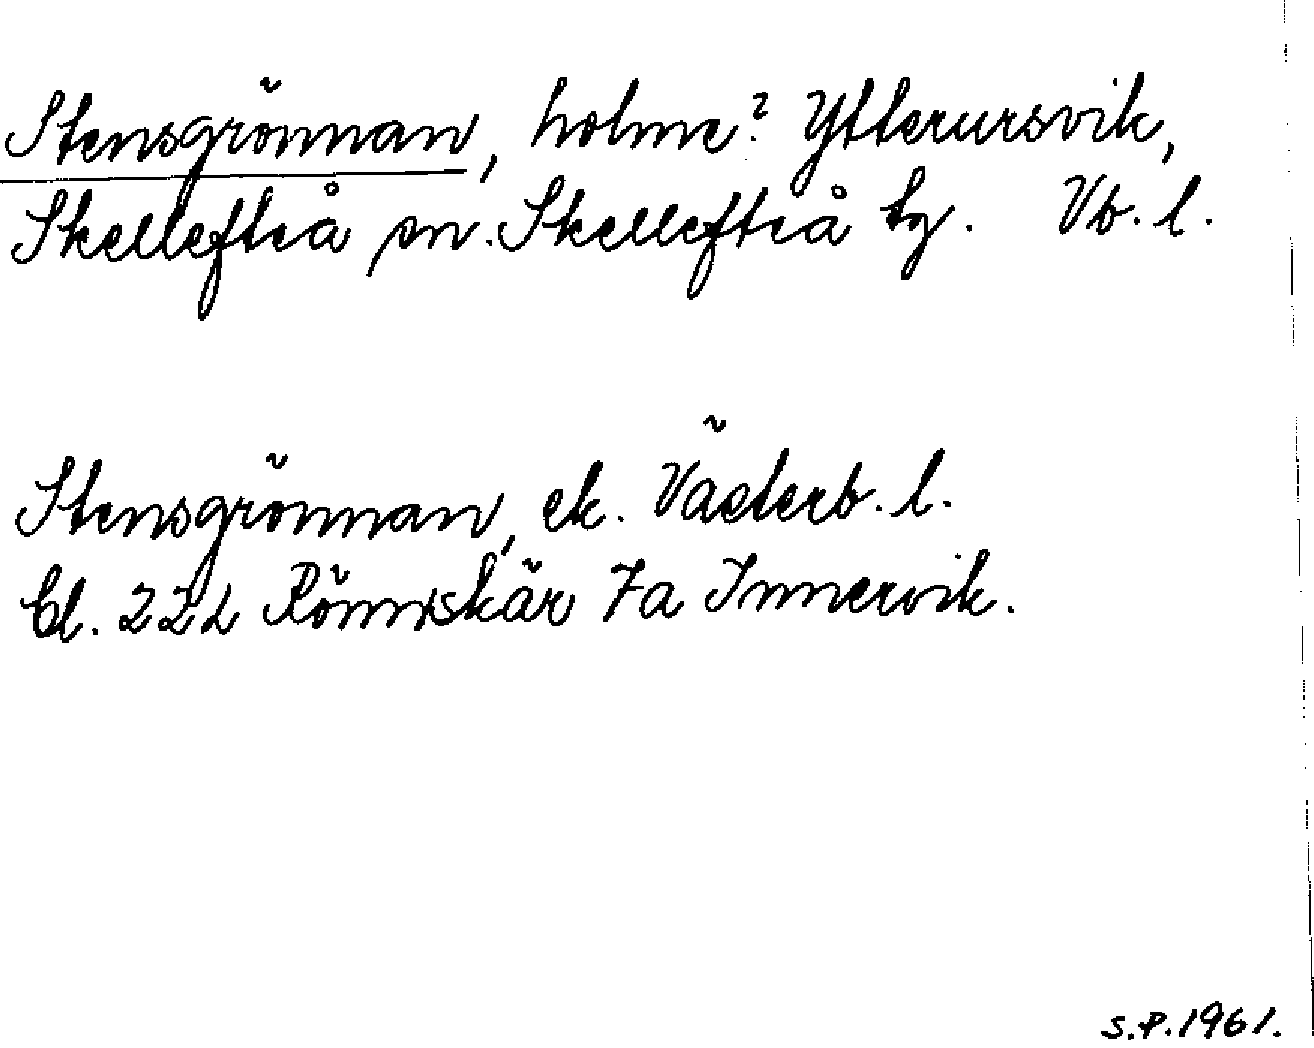 Stensgrönnan, holme? Ytterursvik,
Skellefteå sn. Skellefteå tg. Vb. l.
Stensgrönnan, ek. Västerb. l.
bl. 222 Rönnskär 7a Innervik.
S.P.1961.